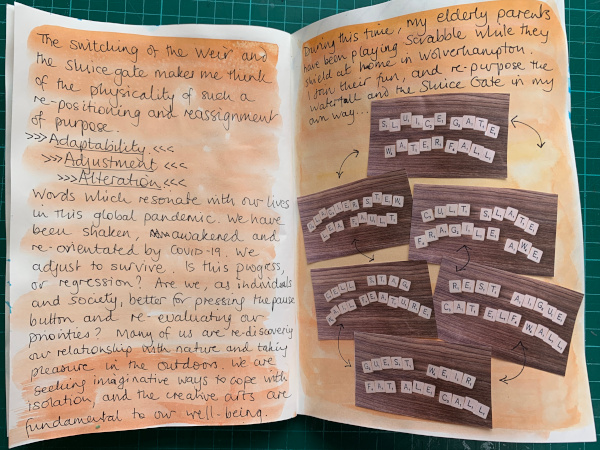 The switching of the weir and
the sluice gate makes me think
of the physicality of such a
re-positioning and reassignment
of purpose.
>>> Adaptability <<<
>>> Adjustment <<<
>>> Alteration <<<
Words which resonate with our lives
in this global pandemic. We have
been shaken, awakened and
re-orientated by Covid-19. We
adjust to survive. Is this progress,
or regression? Are we, as individuals
and society, better for pressing the pause
button and re-evaluating our
priorities? Many of us are re-discovering
our relationship with nature and taking
pleasure in the outdoors. We are
seeking imaginative ways to cope with
isolation, and the creative arts are
fundamental to our well-being.
During this time, my elderly parents
have been playing Scrabble while they
shield at home in Wolverhampton.
I join their fun, and re-purpose the
waterfall and the Sluice Gate in my
own way...
SLUICE GATE
WATERFALL
GLACIER STEW
LEA FAULT
CULT SLATE
FRAGILE AWE
CELL STAG
WAIL FEATURE
REST AIGUE
CATELF WALL
GUEST WEIR
FATALE CALL